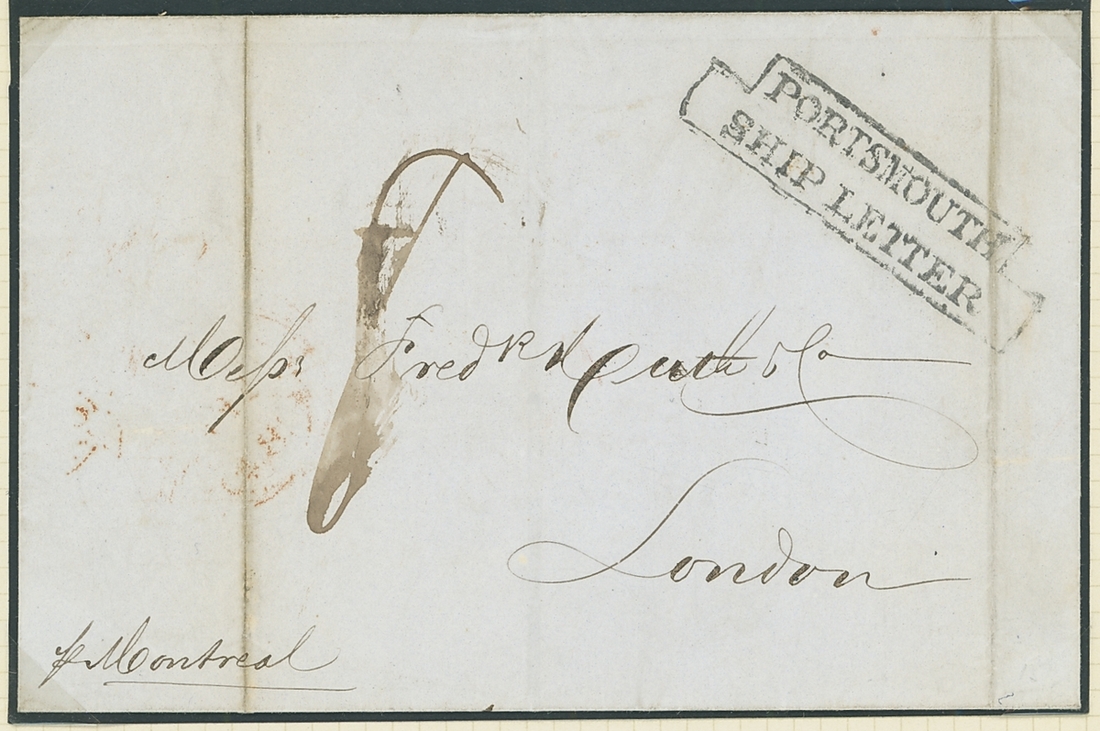 PORTSMOUTH
SHIP LETTER
Messrs Fredk Huth & Co
London
p Montreal